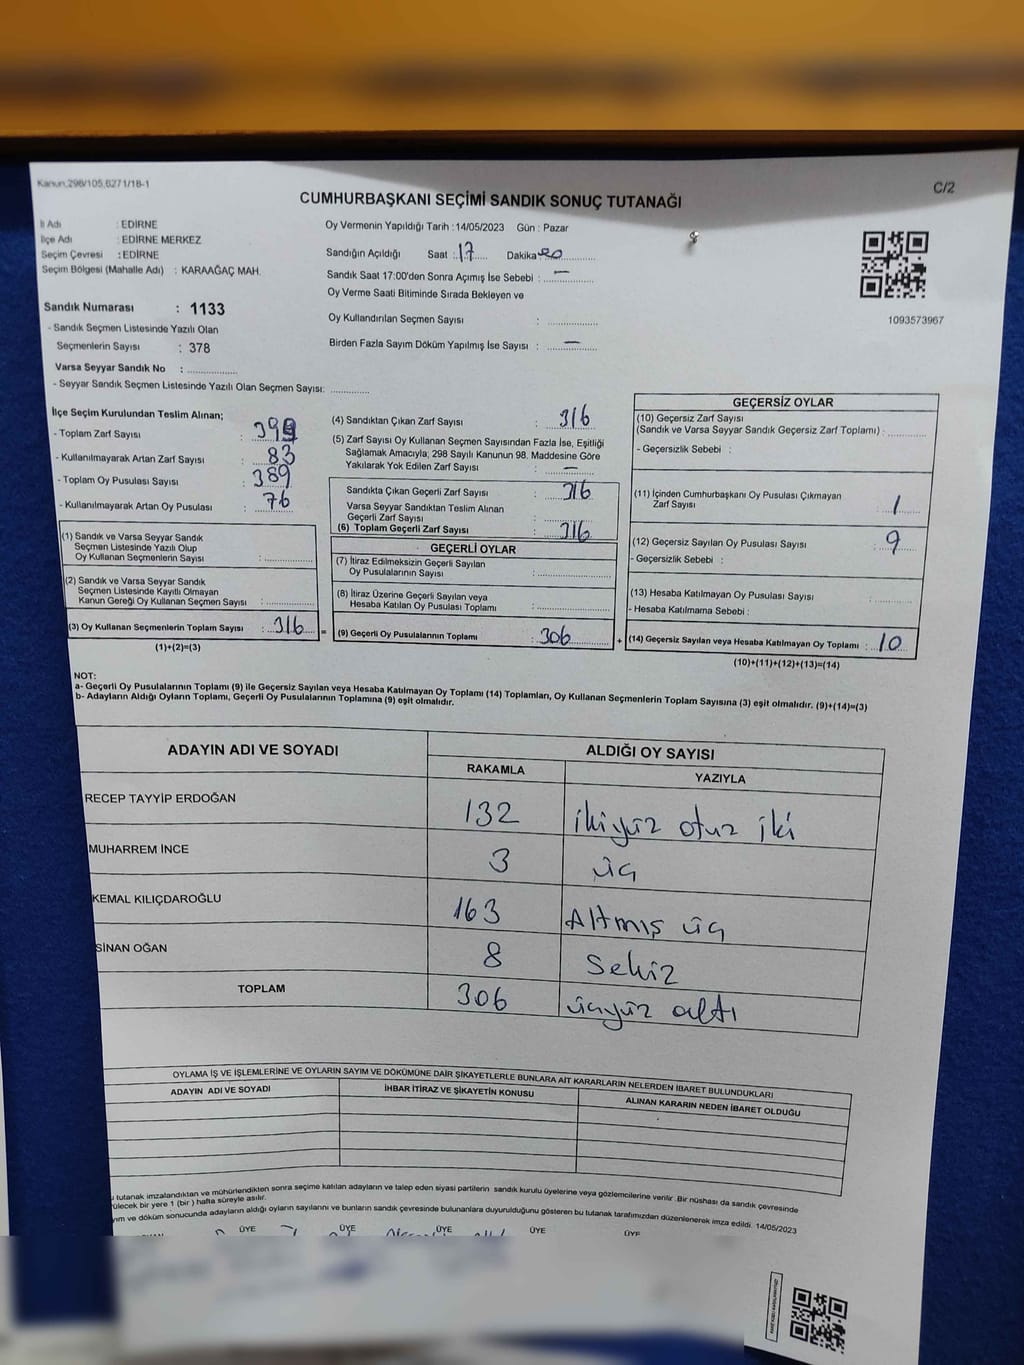 Kanun,298/105,6271/18-1
C/2
CUMHURBAŞKANI SEÇİMİ SANDIK SONUÇ TUTANAĞI
İl Adı : EDİRNE
İlçe Adı : EDİRNE MERKEZ
Seçim Çevresi : EDİRNE
Seçim Bölgesi (Mahalle Adı) : KARAAĞAÇ MAH.
Oy Vermenin Yapıldığı Tarih :14/05/2023 Gün : Pazar
Sandığın Açıldığı Saat :17 Dakika 20
Sandık Saat 17:00'den Sonra Açımış İse Sebebi : —
Oy Verme Saati Bitiminde Sırada Bekleyen ve
Oy Kullandırılan Seçmen Sayısı :
Birden Fazla Sayım Döküm Yapılmış İse Sayısı : —
1093573967
Sandık Numarası : 1133
- Sandık Seçmen Listesinde Yazılı Olan
Seçmenlerin Sayısı : 378
Varsa Seyyar Sandık No :
- Seyyar Sandık Seçmen Listesinde Yazılı Olan Seçmen Sayısı:
İlçe Seçim Kurulundan Teslim Alınan;
- Toplam Zarf Sayısı : 399
- Kullanılmayarak Artan Zarf Sayısı : 83
- Toplam Oy Pusulası Sayısı : 389
- Kullanılmayarak Artan Oy Pusulası : 76
(1) Sandık ve Varsa Seyyar Sandık
Seçmen Listesinde Yazılı Olup
Oy Kullanan Seçmenlerin Sayısı :
(2) Sandık ve Varsa Seyyar Sandık
Seçmen Listesinde Kayıtlı Olmayan
Kanun Gereği Oy Kullanan Seçmen Sayısı :
(3) Oy Kullanan Seçmenlerin Toplam Sayısı : 316 =
(1)+(2)=(3)
(4) Sandıktan Çıkan Zarf Sayısı : 316
(5) Zarf Sayısı Oy Kullanan Seçmen Sayısından Fazla İse, Eşitliği
Sağlamak Amacıyla; 298 Sayılı Kanunun 98. Maddesine Göre
Yakılarak Yok Edilen Zarf Sayısı : —
Sandıkta Çıkan Geçerli Zarf Sayısı : 316
Varsa Seyyar Sandıktan Teslim Alınan
Geçerli Zarf Sayısı :
(6) Toplam Geçerli Zarf Sayısı : 316
GEÇERLİ OYLAR
(7) İtiraz Edilmeksizin Geçerli Sayılan
Oy Pusulalarının Sayısı :
(8) İtiraz Üzerine Geçerli Sayılan veya
Hesaba Katılan Oy Pusulası Toplamı :
(9) Geçerli Oy Pusulalarının Toplamı : 306 +
GEÇERSİZ OYLAR
(10) Geçersiz Zarf Sayısı
(Sandık ve Varsa Seyyar Sandık Geçersiz Zarf Toplamı) :
- Geçersizlik Sebebi :
(11) İçinden Cumhurbaşkanı Oy Pusulası Çıkmayan
Zarf Sayısı : 1
(12) Geçersiz Sayılan Oy Pusulası Sayısı : 9
- Geçersizlik Sebebi :
(13) Hesaba Katılmayan Oy Pusulası Sayısı :
- Hesaba Katılmama Sebebi :
(14) Geçersiz Sayılan veya Hesaba Katılmayan Oy Toplamı : 10
(10)+(11)+(12)+(13)=(14)
NOT:
a- Geçerli Oy Pusulalarının Toplamı (9) ile Geçersiz Sayılan veya Hesaba Katılmayan Oy Toplamı (14) Toplamları, Oy Kullanan Seçmenlerin Toplam Sayısına (3) eşit olmalıdır. (9)+(14)=(3)
b- Adayların Aldığı Oyların Toplamı, Geçerli Oy Pusulalarının Toplamına (9) eşit olmalıdır.
ADAYIN ADI VE SOYADI ALDIĞI OY SAYISI
RAKAMLA YAZIYLA
RECEP TAYYİP ERDOĞAN 132 ikiyüz otuz iki
MUHARREM İNCE 3 üç
KEMAL KILIÇDAROĞLU 163 Altmış üç
SİNAN OĞAN 8 Sekiz
TOPLAM 306 üçyüz altı
OYLAMA İŞ VE İŞLEMLERİNE VE OYLARIN SAYIM VE DÖKÜMÜNE DAİR ŞİKAYETLERLE BUNLARA AİT KARARLARIN NELERDEN İBARET BULUNDUKLARI
ADAYIN ADI VE SOYADI İHBAR İTİRAZ VE ŞİKAYETİN KONUSU ALINAN KARARIN NEDEN İBARET OLDUĞU
tutanak imzalandıktan ve mühürlendikten sonra seçime katılan adayların ve talep eden siyasi partilerin sandık kurulu üyelerine veya gözlemcilerine verilir. Bir nüshası da sandık çevresinde
bir yere 1 (bir) hafta süreyle asılır.
ve döküm sonucunda adayların aldığı oyların sayılarını ve bunların sandık çevresinde bulunanlara duyurulduğunu gösteren bu tutanak tarafımızdan düzenlenerek imza edildi. 14/05/2023
ÜYE ÜYE ÜYE ÜYE ÜYE